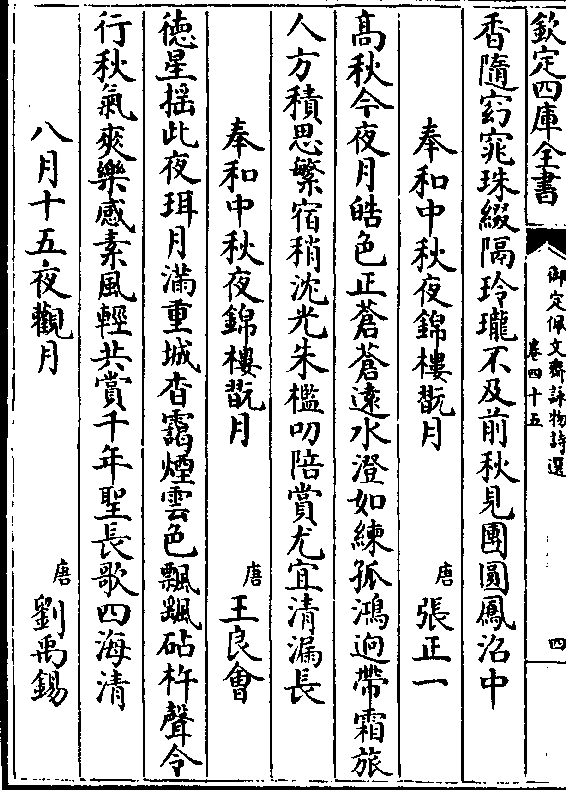 欽定四庫全書
御定佩文齋詠物詩選
卷四十五
四
香隨窈窕珠綴隔玲瓏不及前秋見團圓鳳沼中
奉和中秋夜錦樓翫月
唐
張正一
高秋今夜月皓色正蒼蒼遠水澄如練孤鴻迥帶霜旅
人方積思繁宿稍沈光朱檻叨陪賞尤宜清漏長
奉和中秋夜錦樓翫月
唐
王良會
德星搖此夜珥月滿重城杳靄煙雲色飄颻砧杵聲令
行秋氣爽樂感素風輕共賞千年聖長歌四海清
八月十五夜觀月
唐
劉禹錫